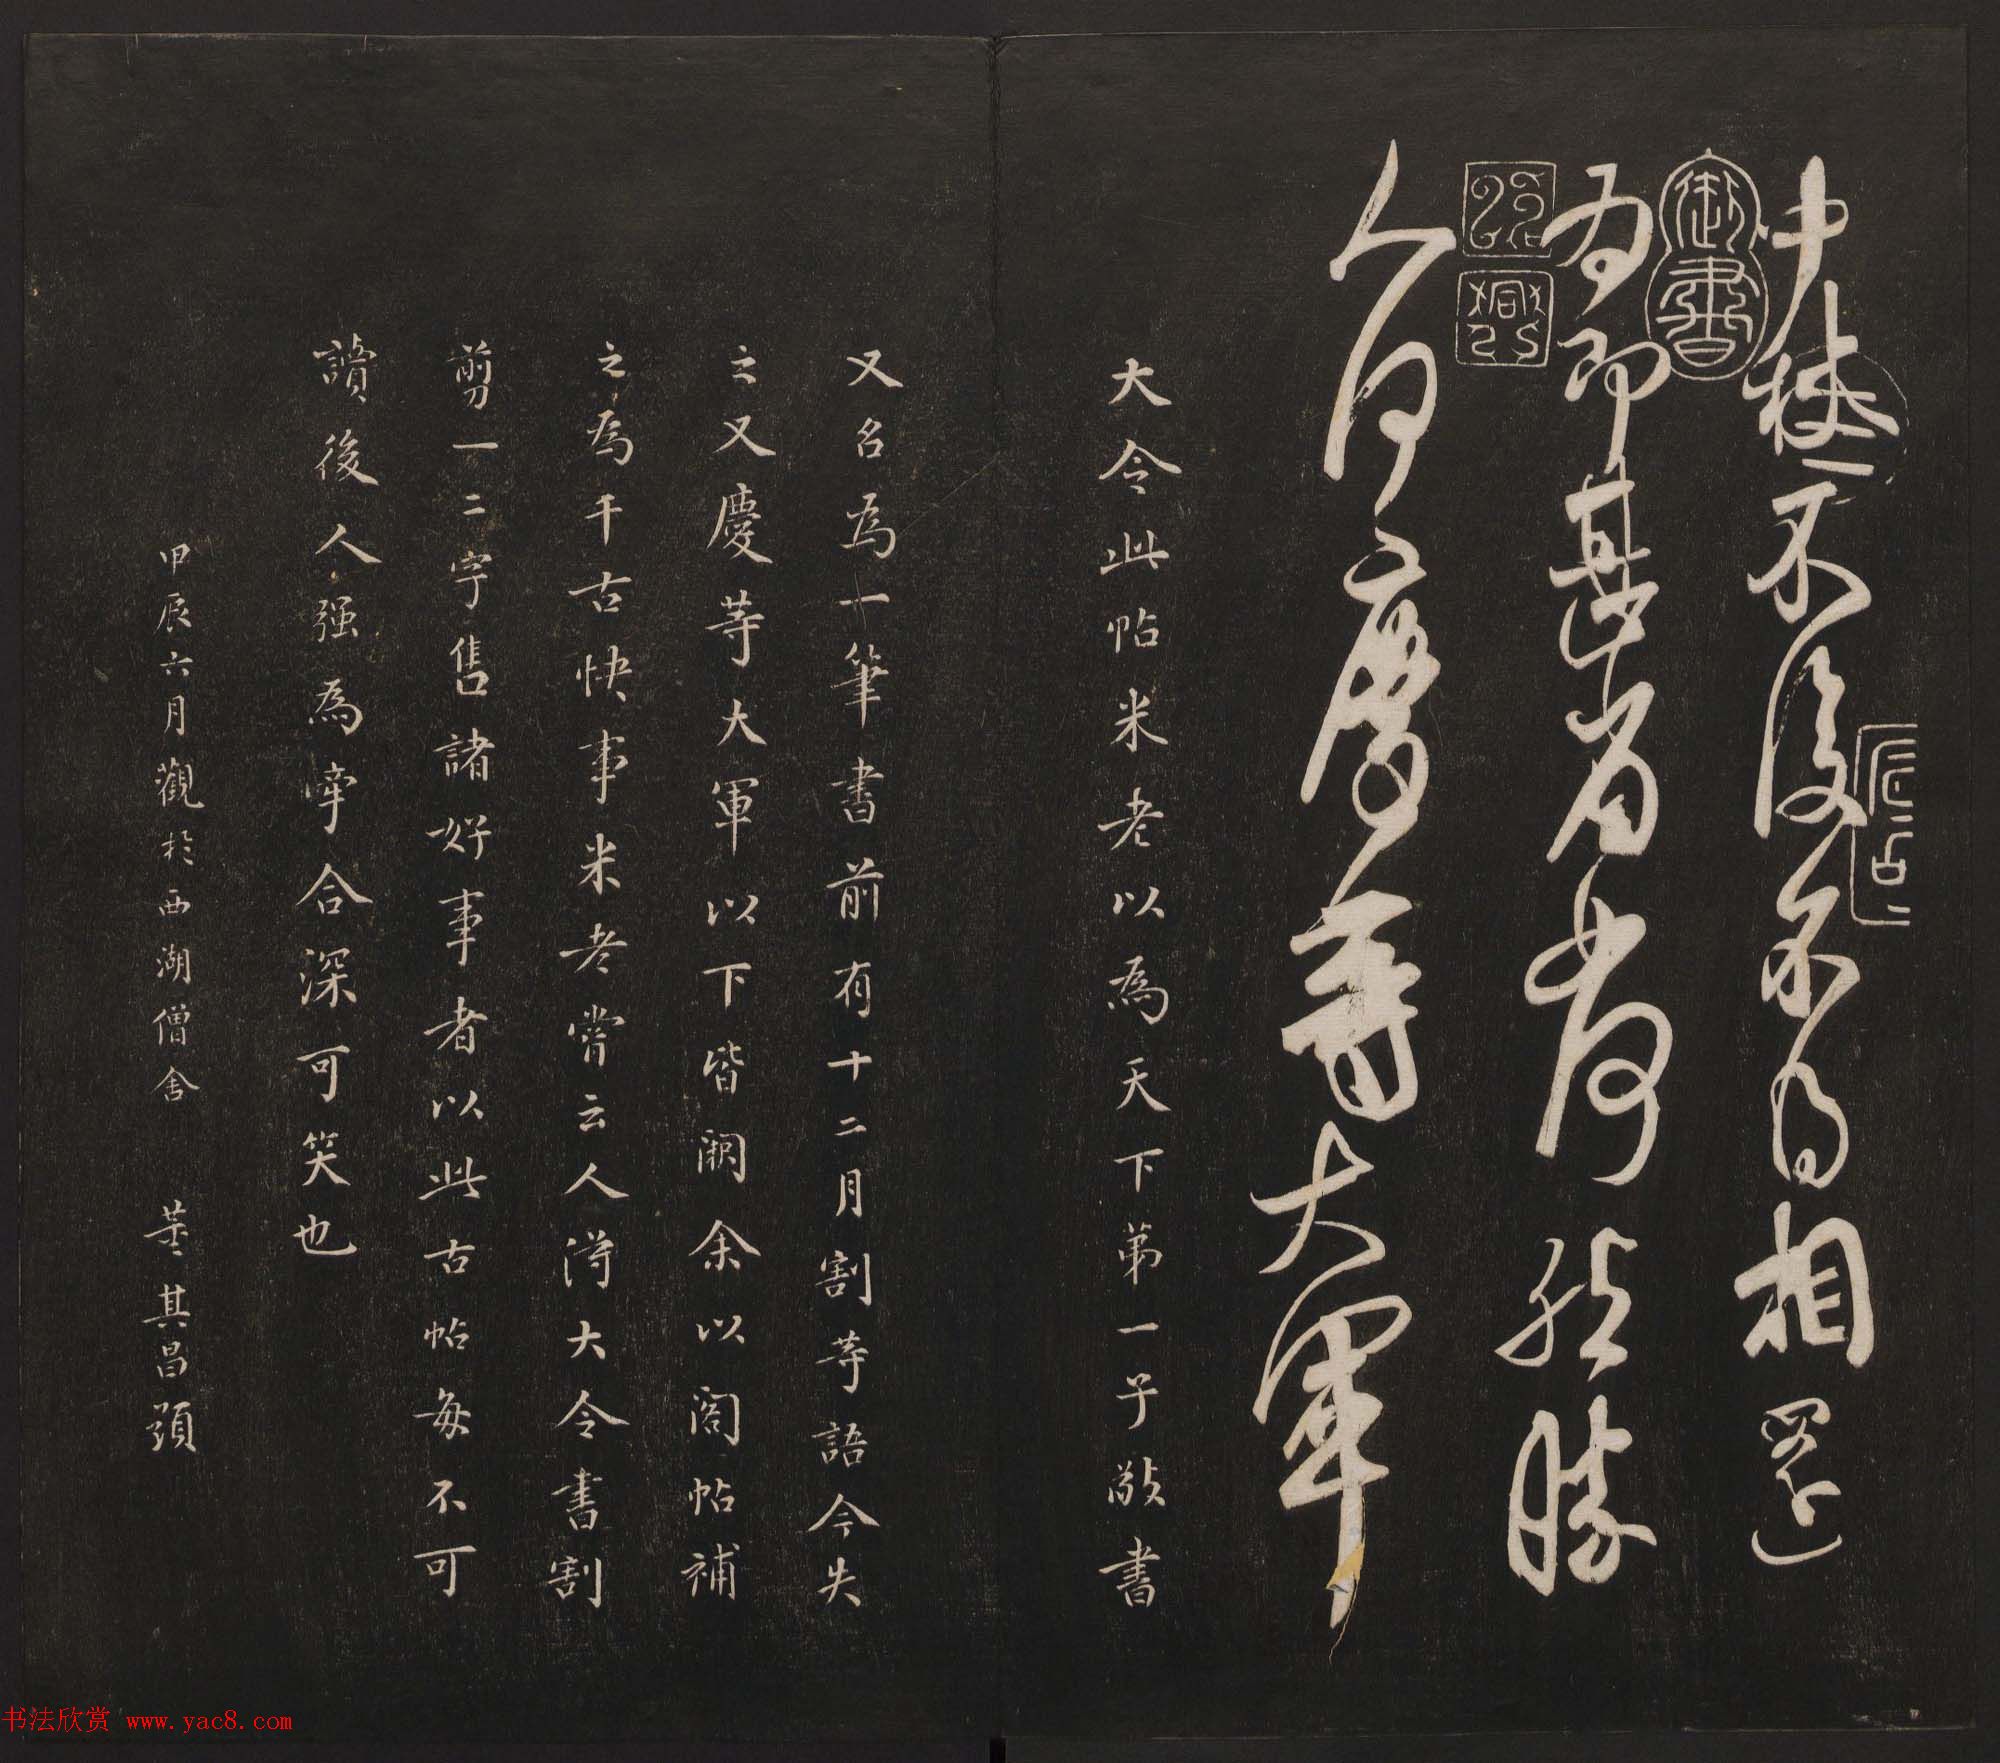 中秋不復不得相還
御書
為即甚省如何然勝
人何慶等大軍
大令此帖米老以為天下第一子敬書
又名為一筆書前有十二月割等語今失
之又慶等大軍以下皆闕余以閣帖補
之為千古快事米老嘗云人得大令書割
剪一二字售諸好事者以此古帖每不可
讀後人強為牽合深可笑也
甲辰六月觀於西湖僧舍 董其昌題
书法欣赏 www.yac8.com